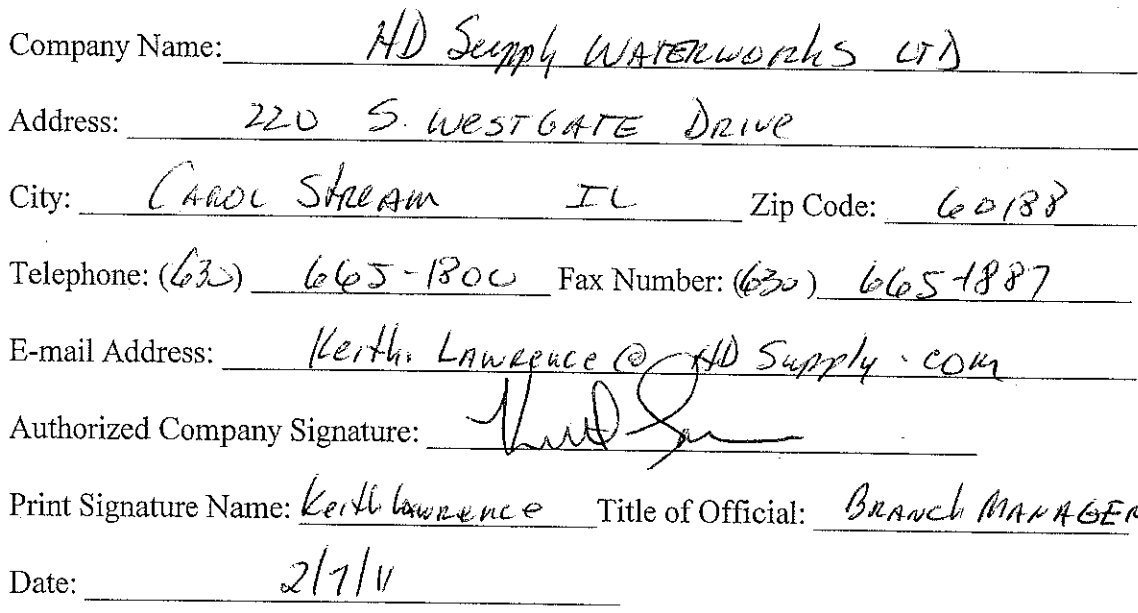 Company Name: HD Supply WATERWORKS LTD
Address: 220 S. WESTGATE DRIVE
City: CAROL STREAM IL Zip Code: 60188
Telephone: (630) 665-1800 Fax Number: (630) 665-1887
E-mail Address: Keith.LAWRENCE@HDSupply.com
Authorized Company Signature:
Print Signature Name: Keith Lawrence Title of Official: BRANCH MANAGER
Date: 2/7/11